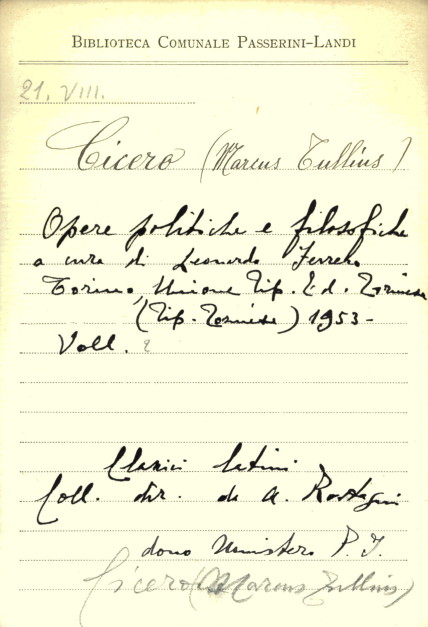 BIBLIOTECA COMUNALE PASSERINI-LANDI
21. VIII.
Cicero (Marcus Tullius)
Opere politiche e filosofiche
a cura di Leonardo Ferrero
Torino, Unione Tip. Ed. Torinese
(Tip. Torinese) 1953-
Voll. 2
Classici latini
Coll. dir. da A. Rostagni
dono Ministero P. I.
Cicero (Marcus Tullius)